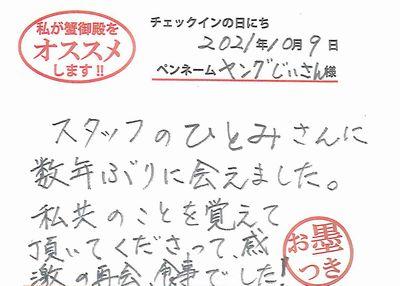 私が蟹御殿を
オススメ
します!!
チェックインの日にち
2021年10月9日
ペンネーム ヤングじぃさん様
スタッフのひとみさんに
数年ぶりに会えました。
私共のことを覚えて
頂いてくださって、感
激の再会、食事でした!
お墨
つき